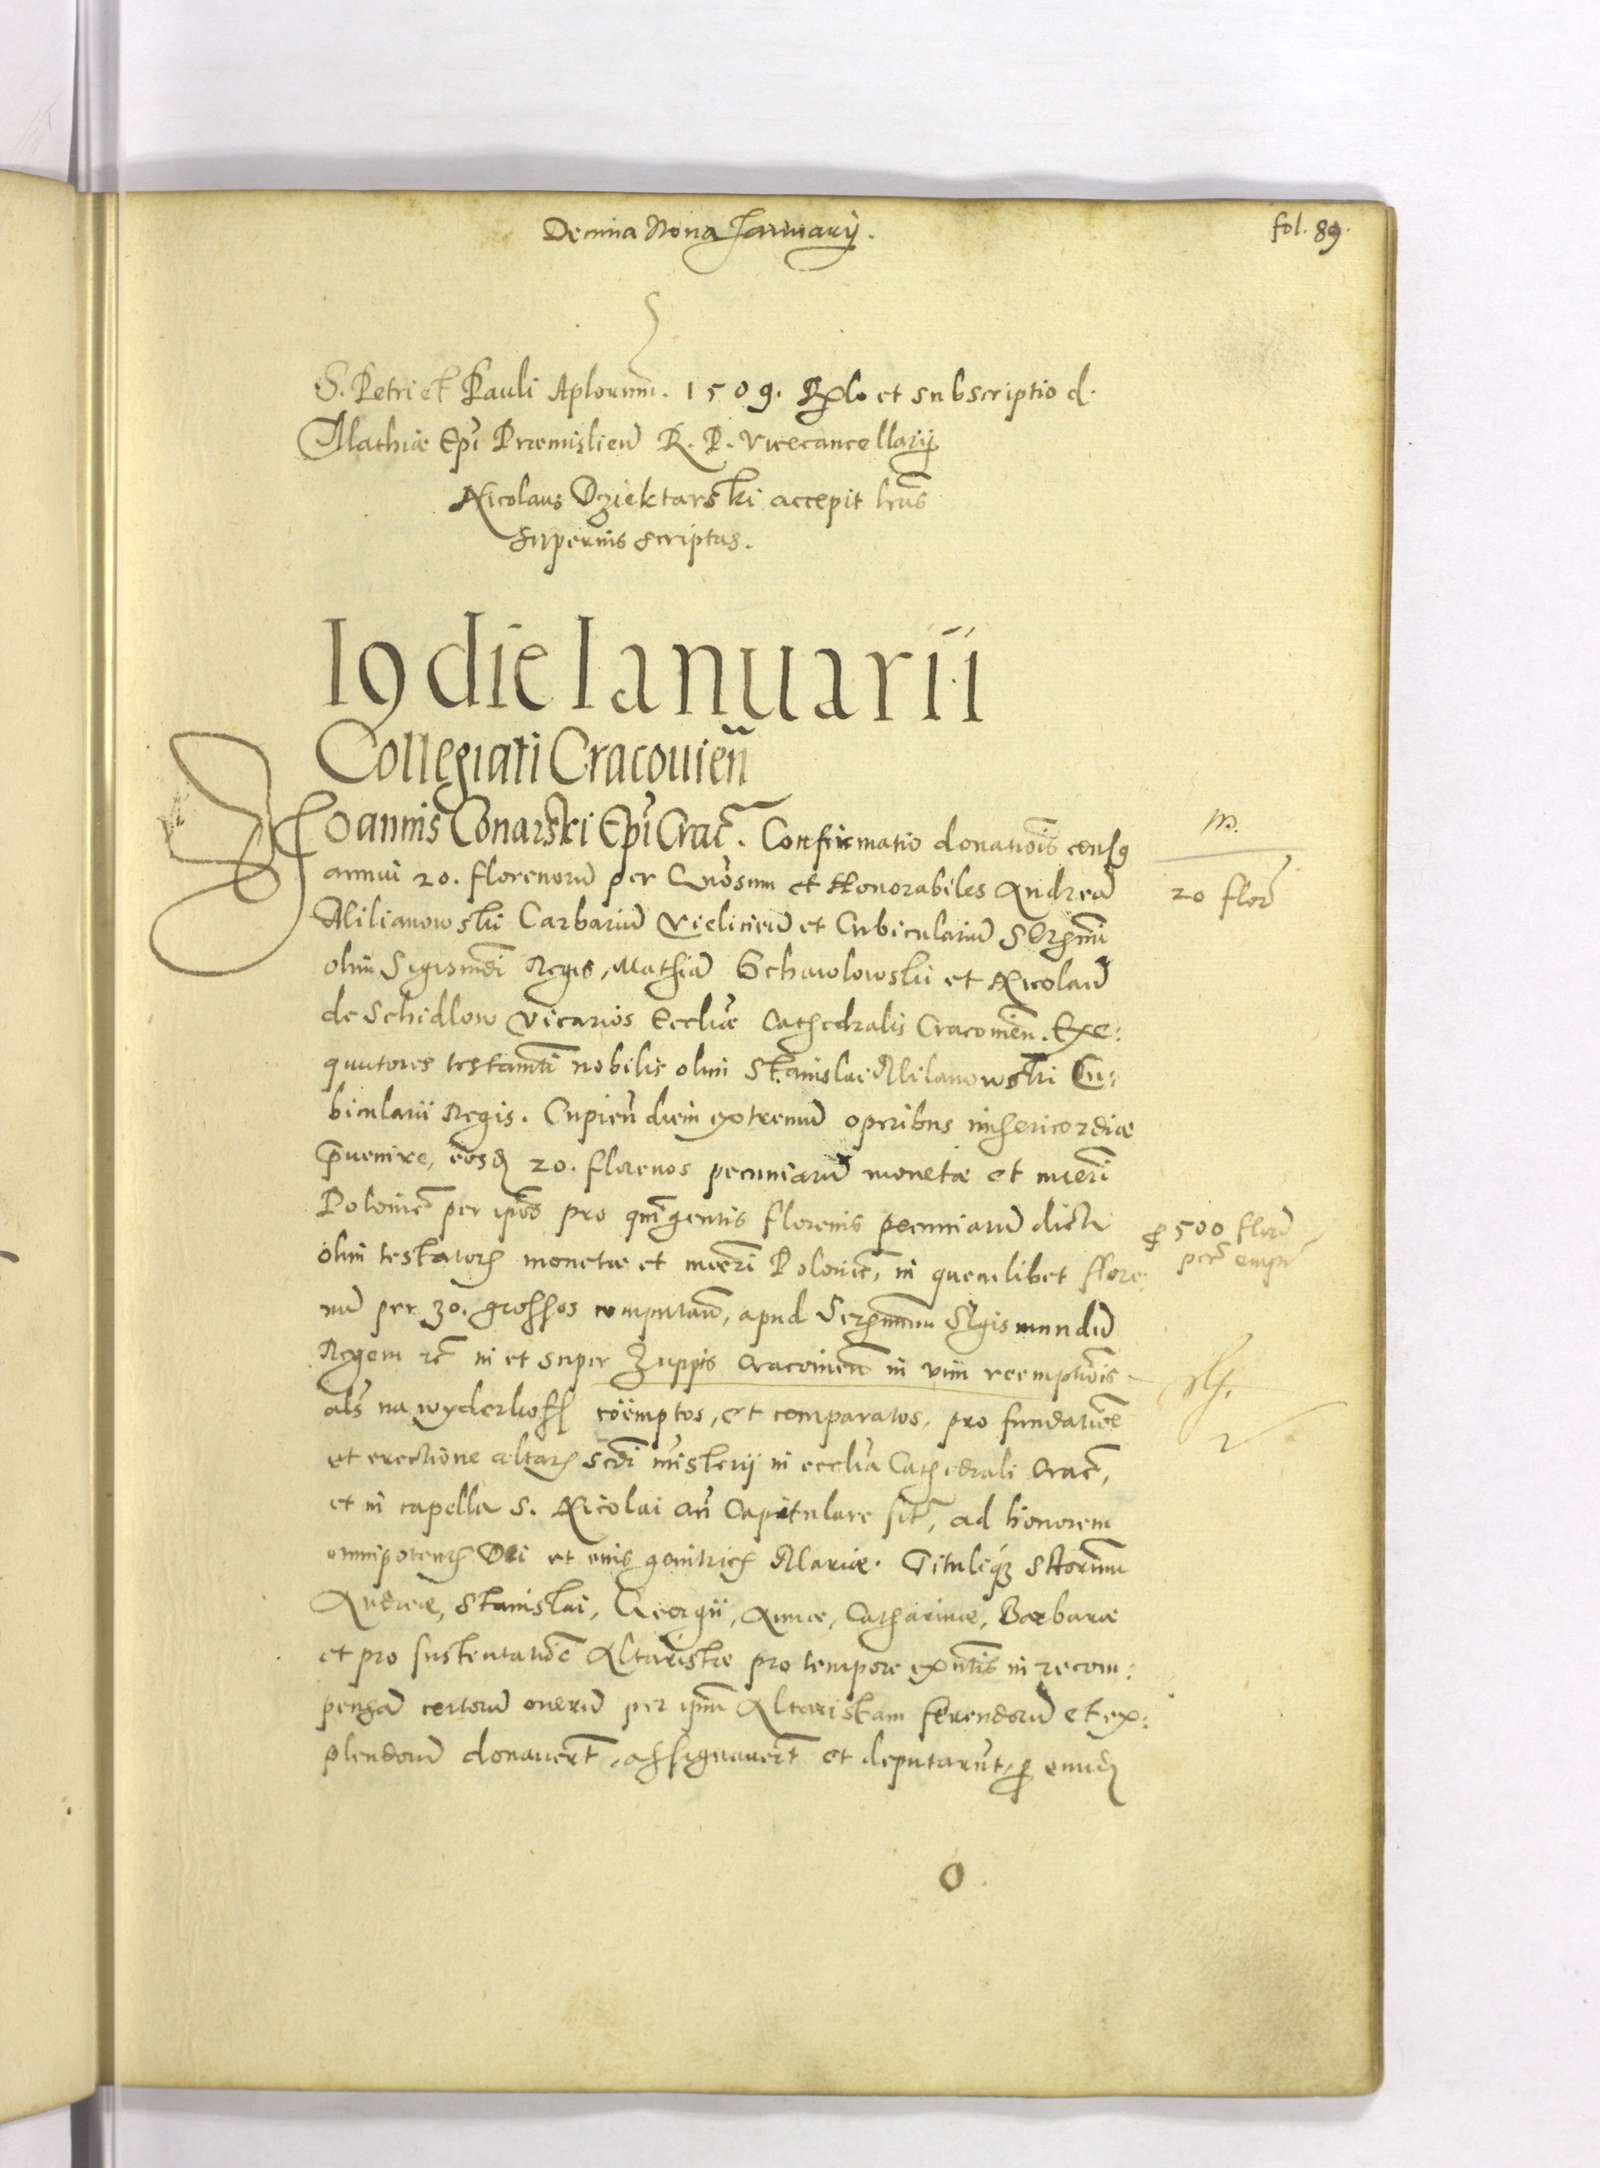 Decima Nona Januarij.
fol. 89.
S. Petri et Pauli Aplorum. 1509. Rlo et subscriptio d.
Mathiæ Epi Præmislien R. P. vicecancellarij
Nicolaus Dziektarski accepit lras
superius scriptas.
19 die Ianuarii
Collegiati Cracouien
Joannis Conarski Epi Crac. Confirmatio donationis census
annui 20. florenoru per Gnosum et Honorabiles Andreā
Milianowski Carbariū Vieliciēn et Cubiculariū Sermi
olim Sigismdi Regis, Mathiā Schawlowski et Nicolaū
de Schidlow vicarios Ecclīæ Cathedralis Cracouien. Exe:
quutores testamti nobilis olim Stanislai Milanowski Cu:
bicularii Regis. Cupien diem extremū operibus misericordiæ
pvenire, eosd 20. florenos pecuniarū monetæ et nueri
Polonic per ipsos pro quingentis florenis pecuniarū dicti
olim testatoris monetæ et nueri Polonic, in quemlibet flore:
nū per 30. grossos computan, apud Sermum Sigismundū
Regem rc in et super Zuppis Cracouien in vim reemptiōis
als na wyderkoff coëmptos, et comparatos, pro fundatiōe
et erectione altaris scdi misterij in ecclīa Cathedrali Crac,
et in capella S. Nicolai an Capitulare sit, ad honorem
omnipotentis Dei et eius genitricis Mariæ. Tituliq Sctorum
Andreæ, Stanislai, Georgii, Annæ, Catharinæ, Barbaræ
et pro sustentatiōe Altaristæ pro tempore exntis in recom:
pensā certorū onerū per ipm Altaristam ferendorū et ex:
plendorū donauert, assignauert et deputarūt, p eund
m.
20 flor
p 500 florē
pec emp
2
O.